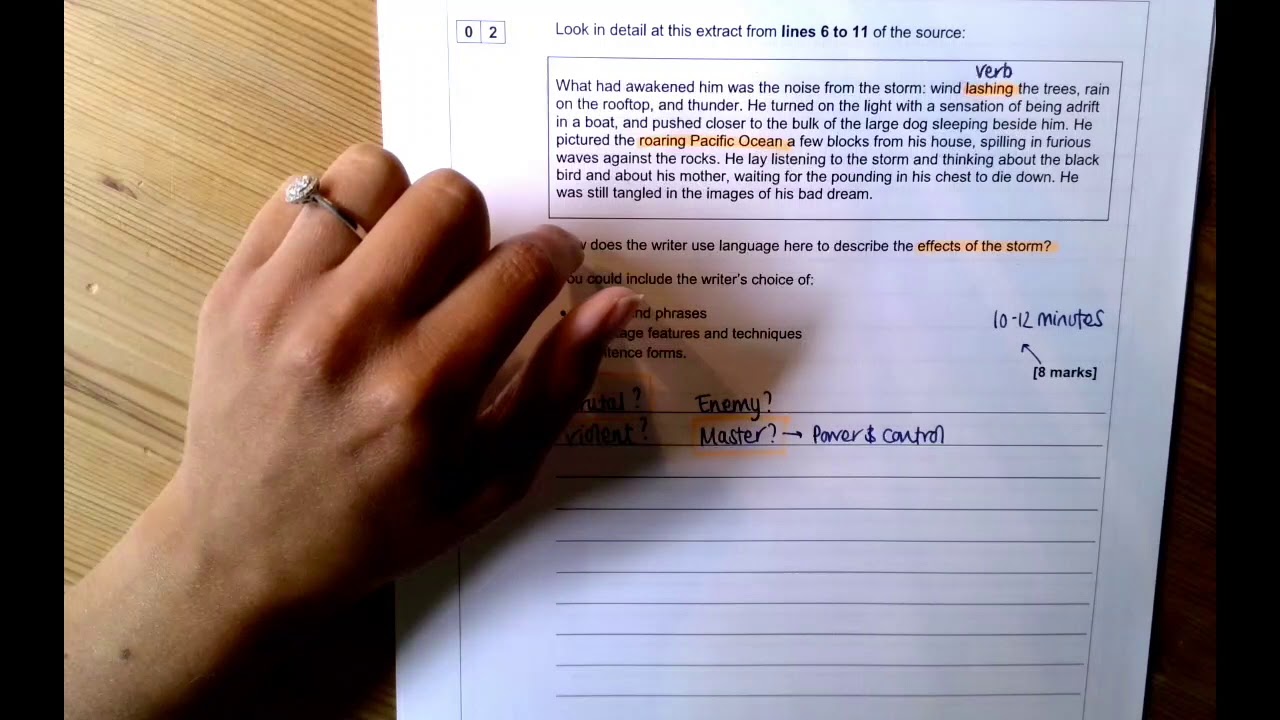 0 2
Look in detail at this extract from lines 6 to 11 of the source:
verb
What had awakened him was the noise from the storm: wind lashing the trees, rain
on the rooftop, and thunder. He turned on the light with a sensation of being adrift
in a boat, and pushed closer to the bulk of the large dog sleeping beside him. He
pictured the roaring Pacific Ocean a few blocks from his house, spilling in furious
waves against the rocks. He lay listening to the storm and thinking about the black
bird and about his mother, waiting for the pounding in his chest to die down. He
was still tangled in the images of his bad dream.
does the writer use language here to describe the effects of the storm?
could include the writer's choice of:
phrases
features and techniques
forms.
10-12 minutes
[8 marks]
Enemy?
violent? Master? → Power & control